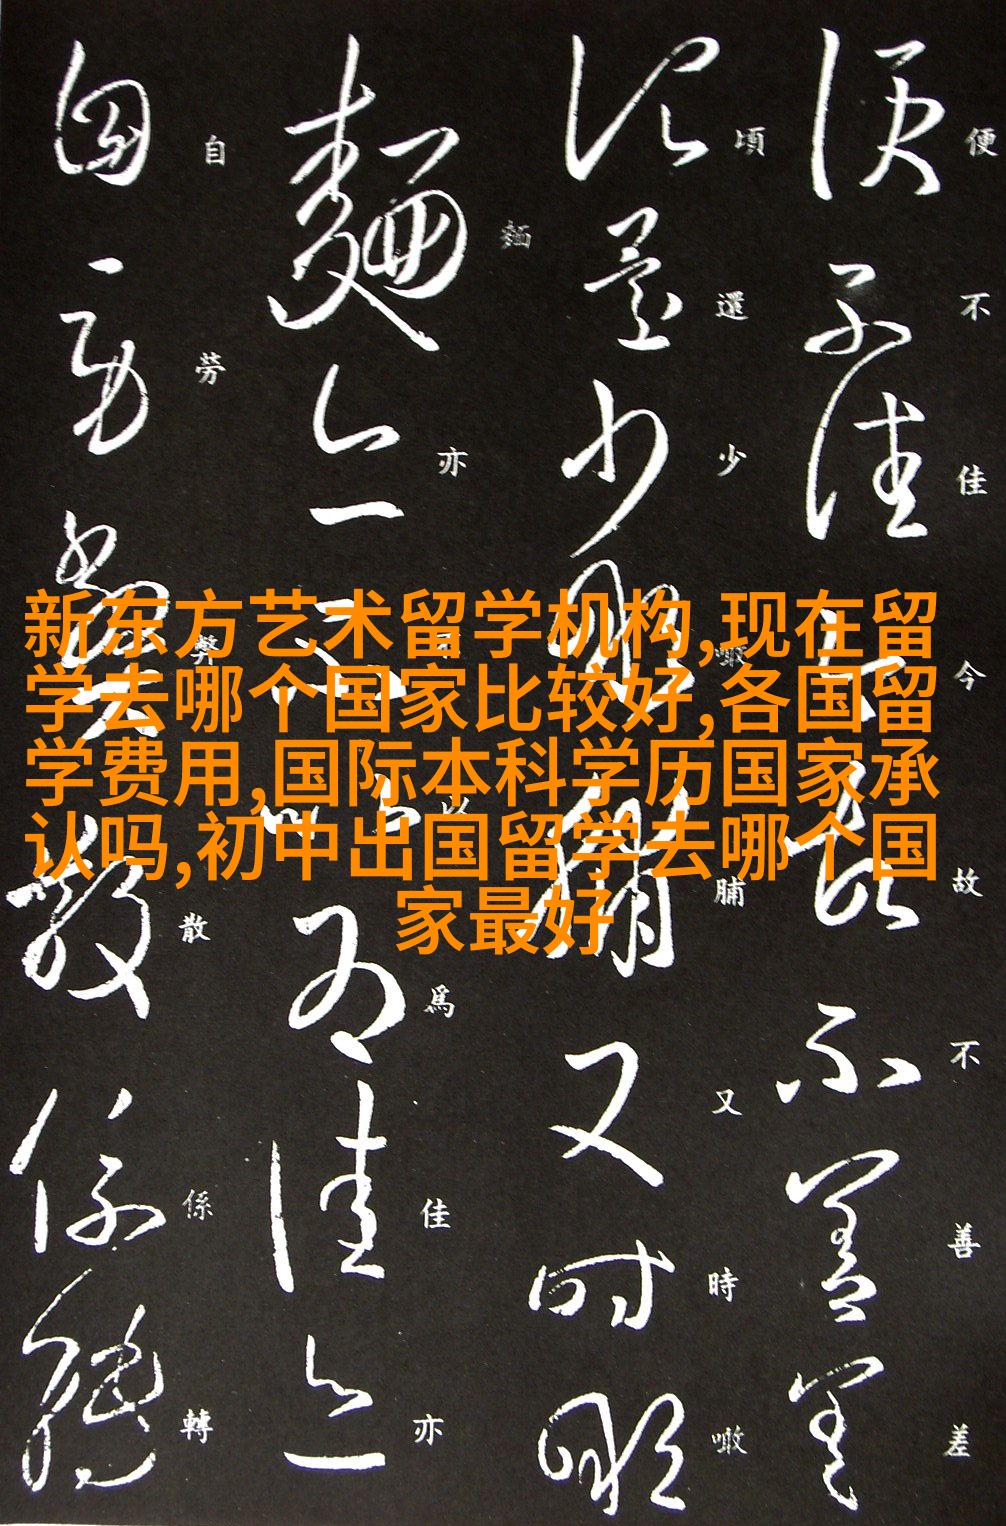 新东方艺术留学机构,现在留
学去哪个国家比较好,各国留
学费用,国际本科学历国家承
认吗,初中出国留学去哪个国
家最好
便不佳今故不善差
頃還少噉脯又時噉
麵亦以爲佳亦
自勞弊散係轉